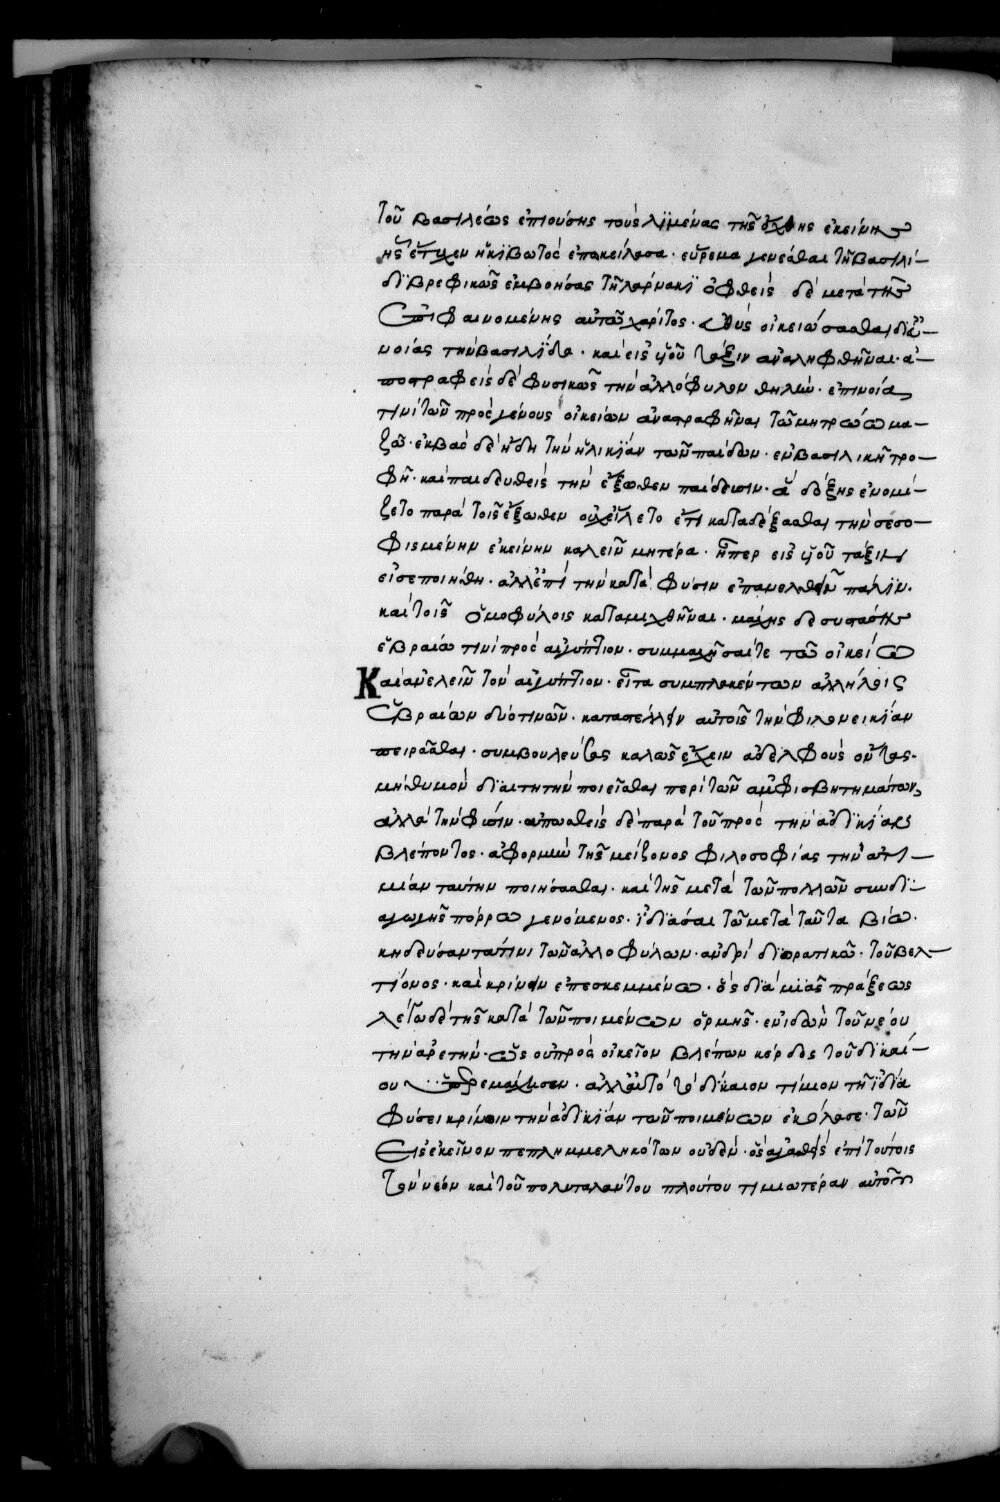 τοῦ βασιλέως ἐπιούσης τοὺς λϊμένας τῆς ὄχθης ἐκείνης
ἧς ἔτυχεν ἡ κϊβωτὸς ἐποκείλασα · εὕρεμα γενέσθαι τῇ βασιλί-
δϊ βρεφικῶς ἐμβοήσας τῇ λάρνακϊ ὀφθεὶς δὲ μετὰ τῆς
ἐπιφαινομένης αὐτῶ χάριτος · εὐθὺς οἰκειώσασθαι δϊ εὐ-
νοίας τὴν βασιλΐδα · καὶ εἰς υἱοῦ τάξιν ἀναληφθῆναι · ἀ-
ποστραφεὶς δὲ φυσικῶς τὴν ἀλλόφυλον θηλὴν · ἐπινοία
τινὶ τῶν πρὸς γένους οἰκείων ἀνατραφῆναι τῶ μητρώω μα-
ζῶ · ἐκβὰς δὲ ἤδη τὴν ἡλικΐαν τῶν παίδων · ἐν βασιλικῇ τρο-
φῇ · καὶ παιδευθεὶς τὴν ἔξωθεν παίδευσιν · ἃ δόξης ἐνομί-
ζετο παρὰ τοῖς ἔξωθεν οὐχ εἵλετο ἔτι καταδέξασθαι τὴν σεσο-
φισμένην ἐκείνην καλεῖν μητέρα · ἧπερ εἰς υἱοῦ τάξιν
εἰσεποιήθη · ἀλλ ἐπὶ τὴν κατὰ φύσιν ἐπανελθεῖν πάλϊν ·
καὶ τοῖς ὁμοφύλοις καταμιχθῆναι · μάχης δὲ συστάσης
ἑβραίω τινὶ πρὸς αἰγύπτιον · συμμαχῆσαί τε τῶ οἰκείω
Καὶ ἀνελεῖν τὸν αἰγύπτιον · εἶτα συμπλακέντων ἀλλήλοις
ἑβραίων δύο τινῶν · καταστέλλειν αὐτοῖς τὴν φιλονεικΐαν
πειρᾶσθαι · συμβουλεύσας καλῶς ἔχειν ἀδελφοὺς ὄντας ·
μὴ θυμὸν δϊαιτητὴν ποιεῖσθαι περὶ τῶν ἀμφισβητημάτων
ἀλλὰ τὴν φύσιν · ἀπωσθεὶς δὲ παρὰ τοῦ πρὸς τὴν ἀδϊκΐαν
βλέποντος · ἀφορμὴν τῆς μείζονος φιλοσοφίας τὴν ἀτι-
μίαν ταύτην ποιήσασθαι · καὶ τῆς μετὰ τῶν πολλῶν συνδϊ-
αγωγῆς πόρρω γενόμενος · ἰδϊάσαι τῶ μετὰ ταῦτα βίω ·
κηδεύσαντά τινι τῶν ἀλλοφύλων · ἀνδρὶ δϊορατικῶ · τοῦ βελ-
τίονος · καὶ κρίνειν ἐπεσκεμμένω · ὃς δϊὰ μϊᾶς πράξεως
λέγω δὲ τῆς κατὰ τῶν ποιμένων ὁρμῆς · ἐνιδὼν τοῦ νέου
τὴν ἀρετὴν · ὡς οὐ πρὸς οἰκεῖον βλέπων κέρδος τοῦ δϊκαί-
ου ὑπερεμάχησεν · ἀλλ αὐτὸ τὸ δίκαιον τίμιον τῇ ἰδία
φύσει κρίνων τὴν ἀδϊκΐαν τῶν ποιμένων ἐκόλασε · τῶν
εἰς ἐκεῖνον πεπλημμεληκότων οὐδὲν · ὃς ἀγασθεὶς ἐπὶ τούτοις
τὸν νέον καὶ τοῦ πολυταλάντου πλούτου τιμιωτέραν αὐτοῦ